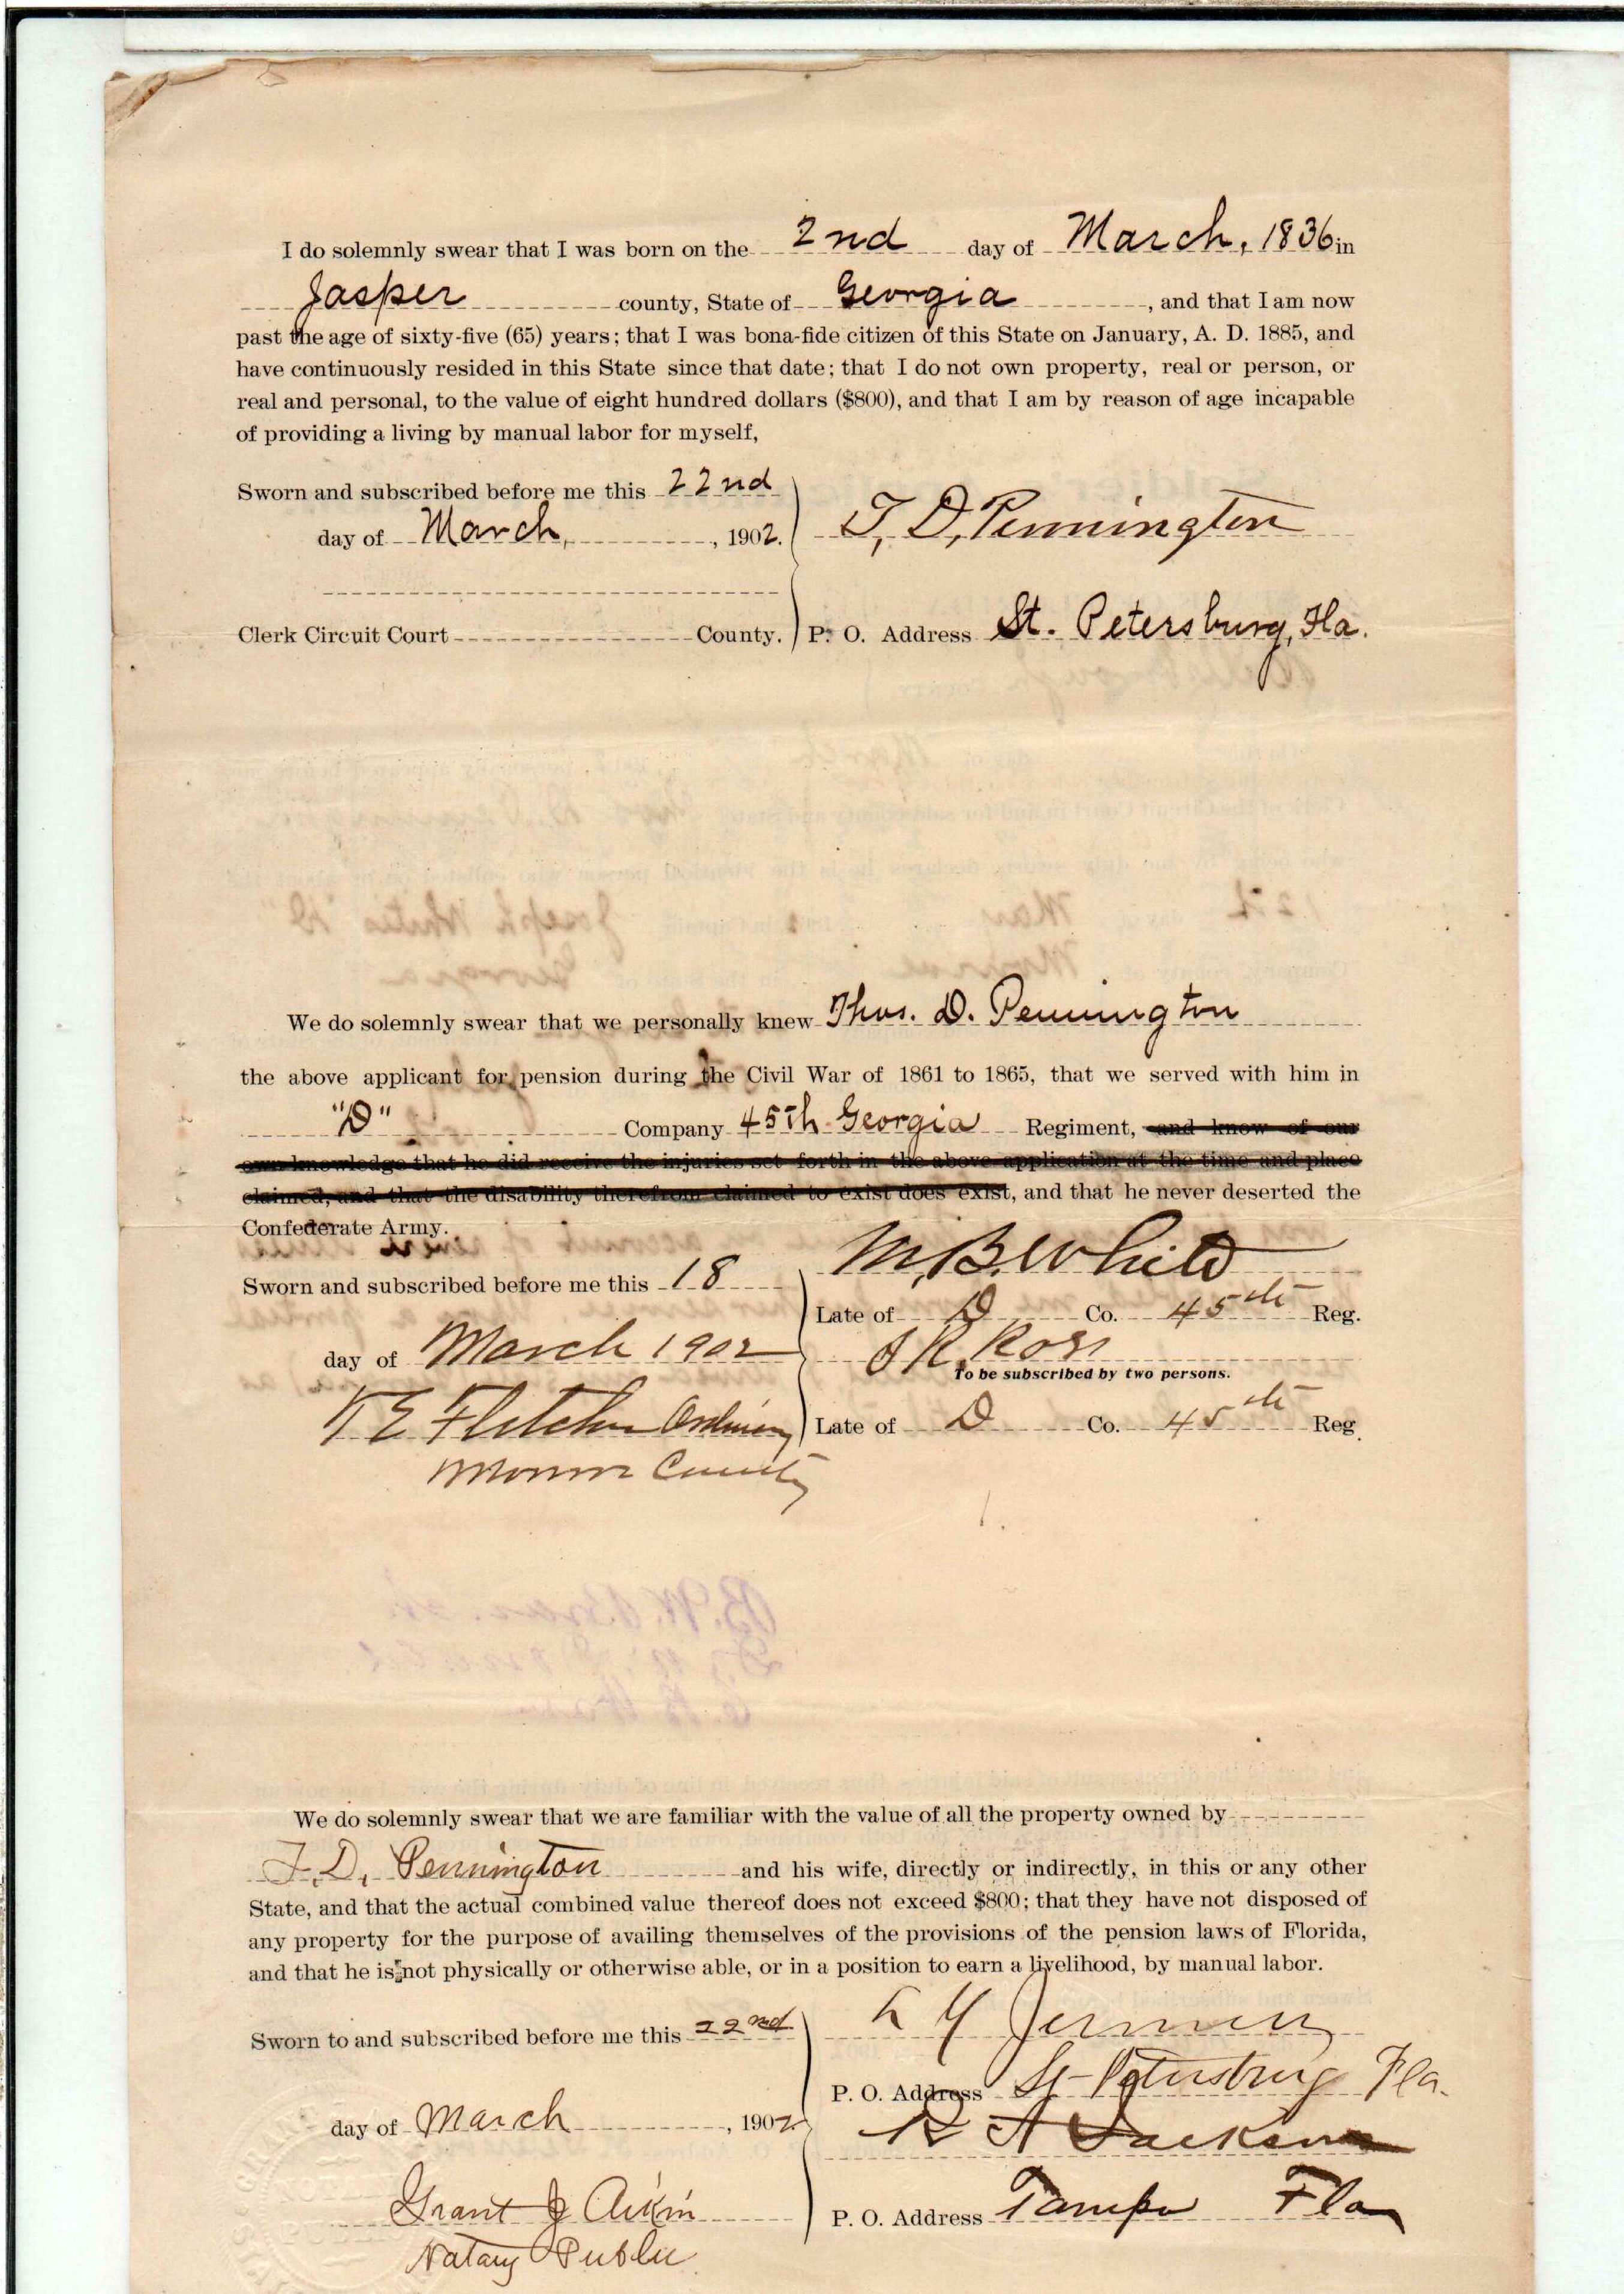 I do solemnly swear that I was born on the 2nd day of March, 1836 in
Jasper county, State of Georgia, and that I am now
past the age of sixty-five (65) years; that I was bona-fide citizen of this State on January, A. D. 1885, and
have continuously resided in this State since that date; that I do not own property, real or person, or
real and personal, to the value of eight hundred dollars ($800), and that I am by reason of age incapable
of providing a living by manual labor for myself,
Sworn and subscribed before me this 22nd
day of March, , 1902.
T. D. Pennington
Clerk Circuit Court County.
P. O. Address St. Petersburg, Fla.
We do solemnly swear that we personally knew Thos. D. Pennington
the above applicant for pension during the Civil War of 1861 to 1865, that we served with him in
"D" Company 45th Georgia Regiment, and know of our
own knowledge that he did receive the injuries set forth in the above application at the time and place
claimed, and that the disability therefrom claimed to exist does exist, and that he never deserted the
Confederate Army.
M. B. White
Sworn and subscribed before me this 18
Late of D Co. 45th Reg.
day of March 1902
Ross
To be subscribed by two persons.
Fletcher Ordinary
Late of D Co. 45th Reg.
Monroe County
We do solemnly swear that we are familiar with the value of all the property owned by
T. D. Pennington and his wife, directly or indirectly, in this or any other
State, and that the actual combined value thereof does not exceed $800; that they have not disposed of
any property for the purpose of availing themselves of the provisions of the pension laws of Florida,
and that he is not physically or otherwise able, or in a position to earn a livelihood, by manual labor.
Sworn to and subscribed before me this 22nd
P. O. Address St-Petersburg Fla.
day of March , 1902
R A Jackson
Grant J Aikin
P. O. Address Tampa Fla
Notary Public